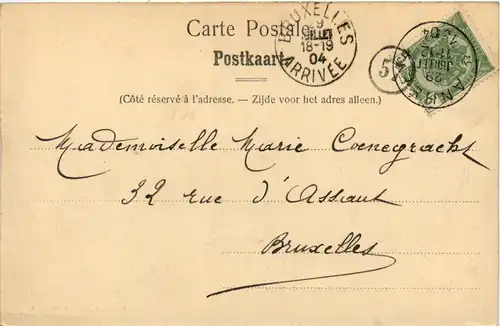 Carte Postale
Postkaart
BRUXELLES
29
JUILLET
18-19
04
ARRIVÉE
5
29
JUILLET
11-12
1904
(Côté réservé à l'adresse. — Zijde voor het adres alleen.)
Mademoiselle Marie Coenegrachs
32 rue d'Assaut
Bruxelles